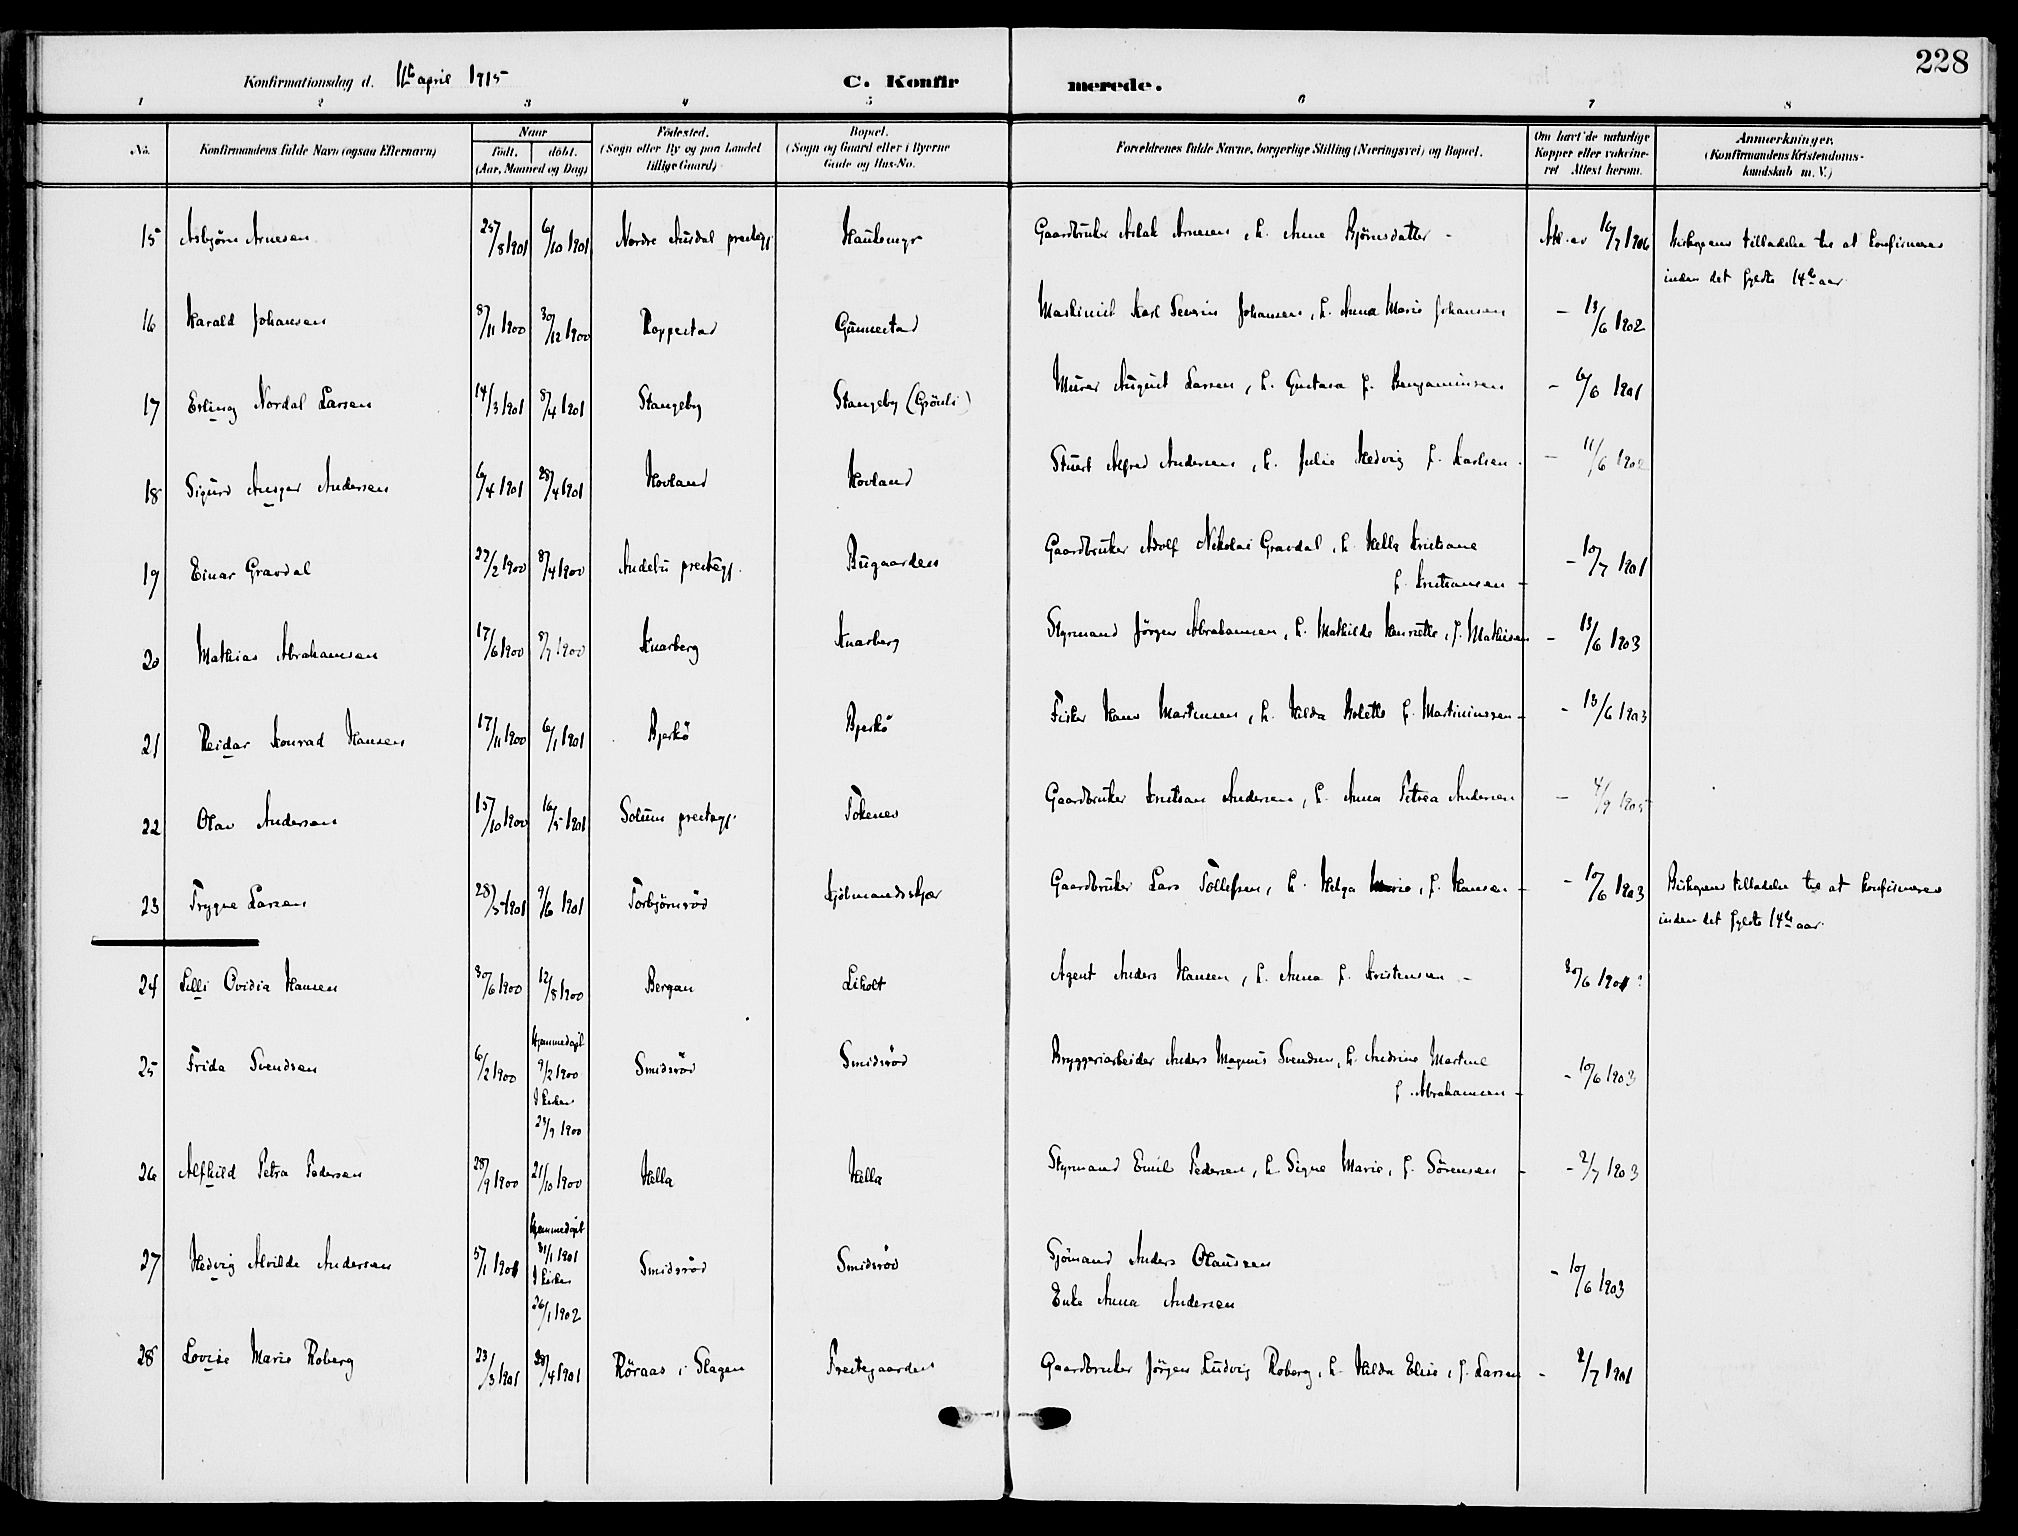 228
Konfirmationsdag d. 11te april 1915 C. Konfirmerede.
1 2 3 4 5 6 7 8
No. Konfirmandens fulde Navn (ogsaa Efternavn) Naar født. døbt. (Aar, Maaned og Dag) Fødested. (Sogn eller By og paa Landet tillige Gaard) Bopæl. (Sogn og Gaard eller i Byerne Gade og Hus-No. Forældrenes fulde Navne, borgerlige Stilling (Næringsvei) og Bopæl. Om havt de naturlige Kopper eller vakcineret Attest herom. Anmærkninger, (Konfirmandens Kristendomskundskab m. V.)
15 Asbjörn Arnesen 25/8 1901 6/10 1901 Nordre Ausdal prestegj. Haukemyr Gaardbruker Aslak Arnesen, h. Anne Bjørnsdatter - Att. av 16/7 1906 Biskopens tilladelse til at konfirmeres
inden det fyldte 14de aar
16 Harald Johansen 8/11 1900 30/12 1900 Roppestad Gunnestad Maskinist Karl Severin Johansen, h. Anna Marie Johansen - 13/6 1902
17 Erling Nordal Larsen 14/3 1901 8/4 1901 Stangeby Stangeby (Grönli) Murer August Larsen, h. Gustava f. Benjaminsen - 6/6 1901
18 Sigurd Ansgar Andersen 6/4 1901 28/4 1901 Hovland Hovland Stuert Alfred Andersen, h. Julie Hedvig f. Karlsen - 11/6 1902
19 Einar Gravdal 22/2 1900 8/4 1900 Andebu prestegj. Bugaarden Gaardbruker Adolf Nikolai Gravdal, h. Hella Kristiane
f. Kristiansen - - 10/7 1901
20 Mathias Abrahamsen 17/6 1900 8/7 1900 Knarberg Knarberg Styrmand Jörgen Abrahamsen, h. Mathilde Henriette, f. Mathisen - 13/6 1903
21 Reidar Konrad Hansen 17/11 1900 6/1 1901 Bjerkö Bjerkö Fisker Hans Martinsen, h. Hilda Bolette f. Martiniussen - - 13/6 1903
22 Olav Andersen 15/10 1900 16/5 1901 Solum prestegj. Tokenes Gaardbruker Kristian Andersen, h. Anna Petrea Andersen - 4/9 1905
23 Trygve Larsen 28/5 1901 9/6 1901 Torbjörnsröd Kjölmandsskjær Gaardbruker Lars Tollefsen, h. Helga Marie, f. Hansen - - 10/6 1903 Biskopens tilladelse til at konfirmeres
inden det fyldte 14de aar.
24 Lilli Ovidia Hansen 30/6 1900 12/8 1900 Bergan Liholt Agent Anders Hansen, h. Anna f. Kristensen - 30/6 1901?
25 Frida Svendsen 6/2 1900 Hjemmedøpt
9/2 1900
I kirken
23/9 1900 Smidsröd Smidsröd Bryggeriarbeider Anders Magnus Svendsen, h. Andrine Martine
f. Abrahamsen - - 10/6 1903
26 Alfhild Petra Pedersen 28/9 1900 21/10 1900 Hella Hella Styrmand Emil Pedersen, h. Signe Marie, f. Sörensen - - 2/7 1903
27 Hedvig Alvilde Andersen 5/1 1901 Hjemmedøpt
31/1 1901
I kirken
26/1 1902 Smidsröd Smidsröd Sjömand Anders Olaussen
Enke Anna Andersen - 10/6 1903
28 Lovise Marie Roberg 23/3 1901 28/4 1901 Röraas i Slagen Prestegaarden Gaardbruker Jörgen Ludvig Roberg, h. Hilda Elise, f. Larsen - 2/7 1901